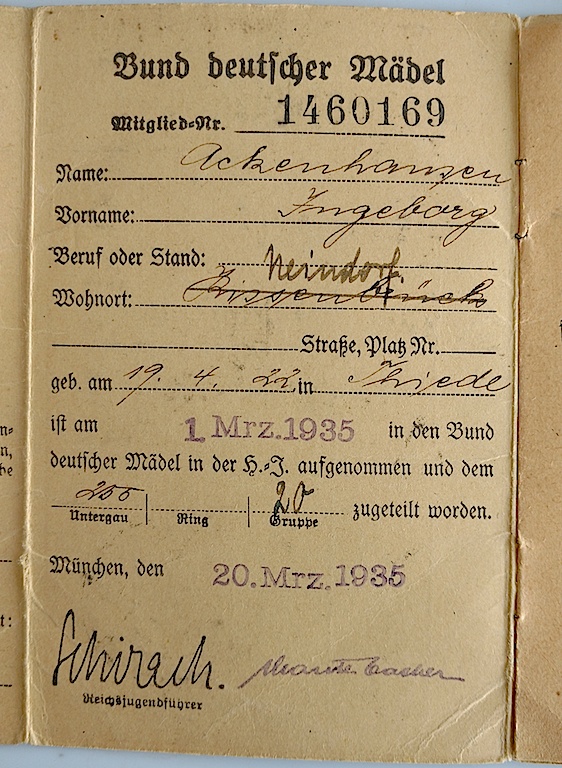 Bund deutscher Mädel
Mitglied-Nr. 1460169
Name: Ackenhausen
Vorname: Ingeborg
Beruf oder Stand:
Neindorf.
Wohnort: Kissenbrück
Straße, Platz Nr.
geb. am 19. 4. 22 in Thiede
ist am 1 Mrz. 1935 in den Bund
deutscher Mädel in der H.-J. aufgenommen und dem
255 20 zugeteilt worden.
Untergau Ring Gruppe
München, den 20. Mrz. 1935
Schirach.
Reichsjugendführer